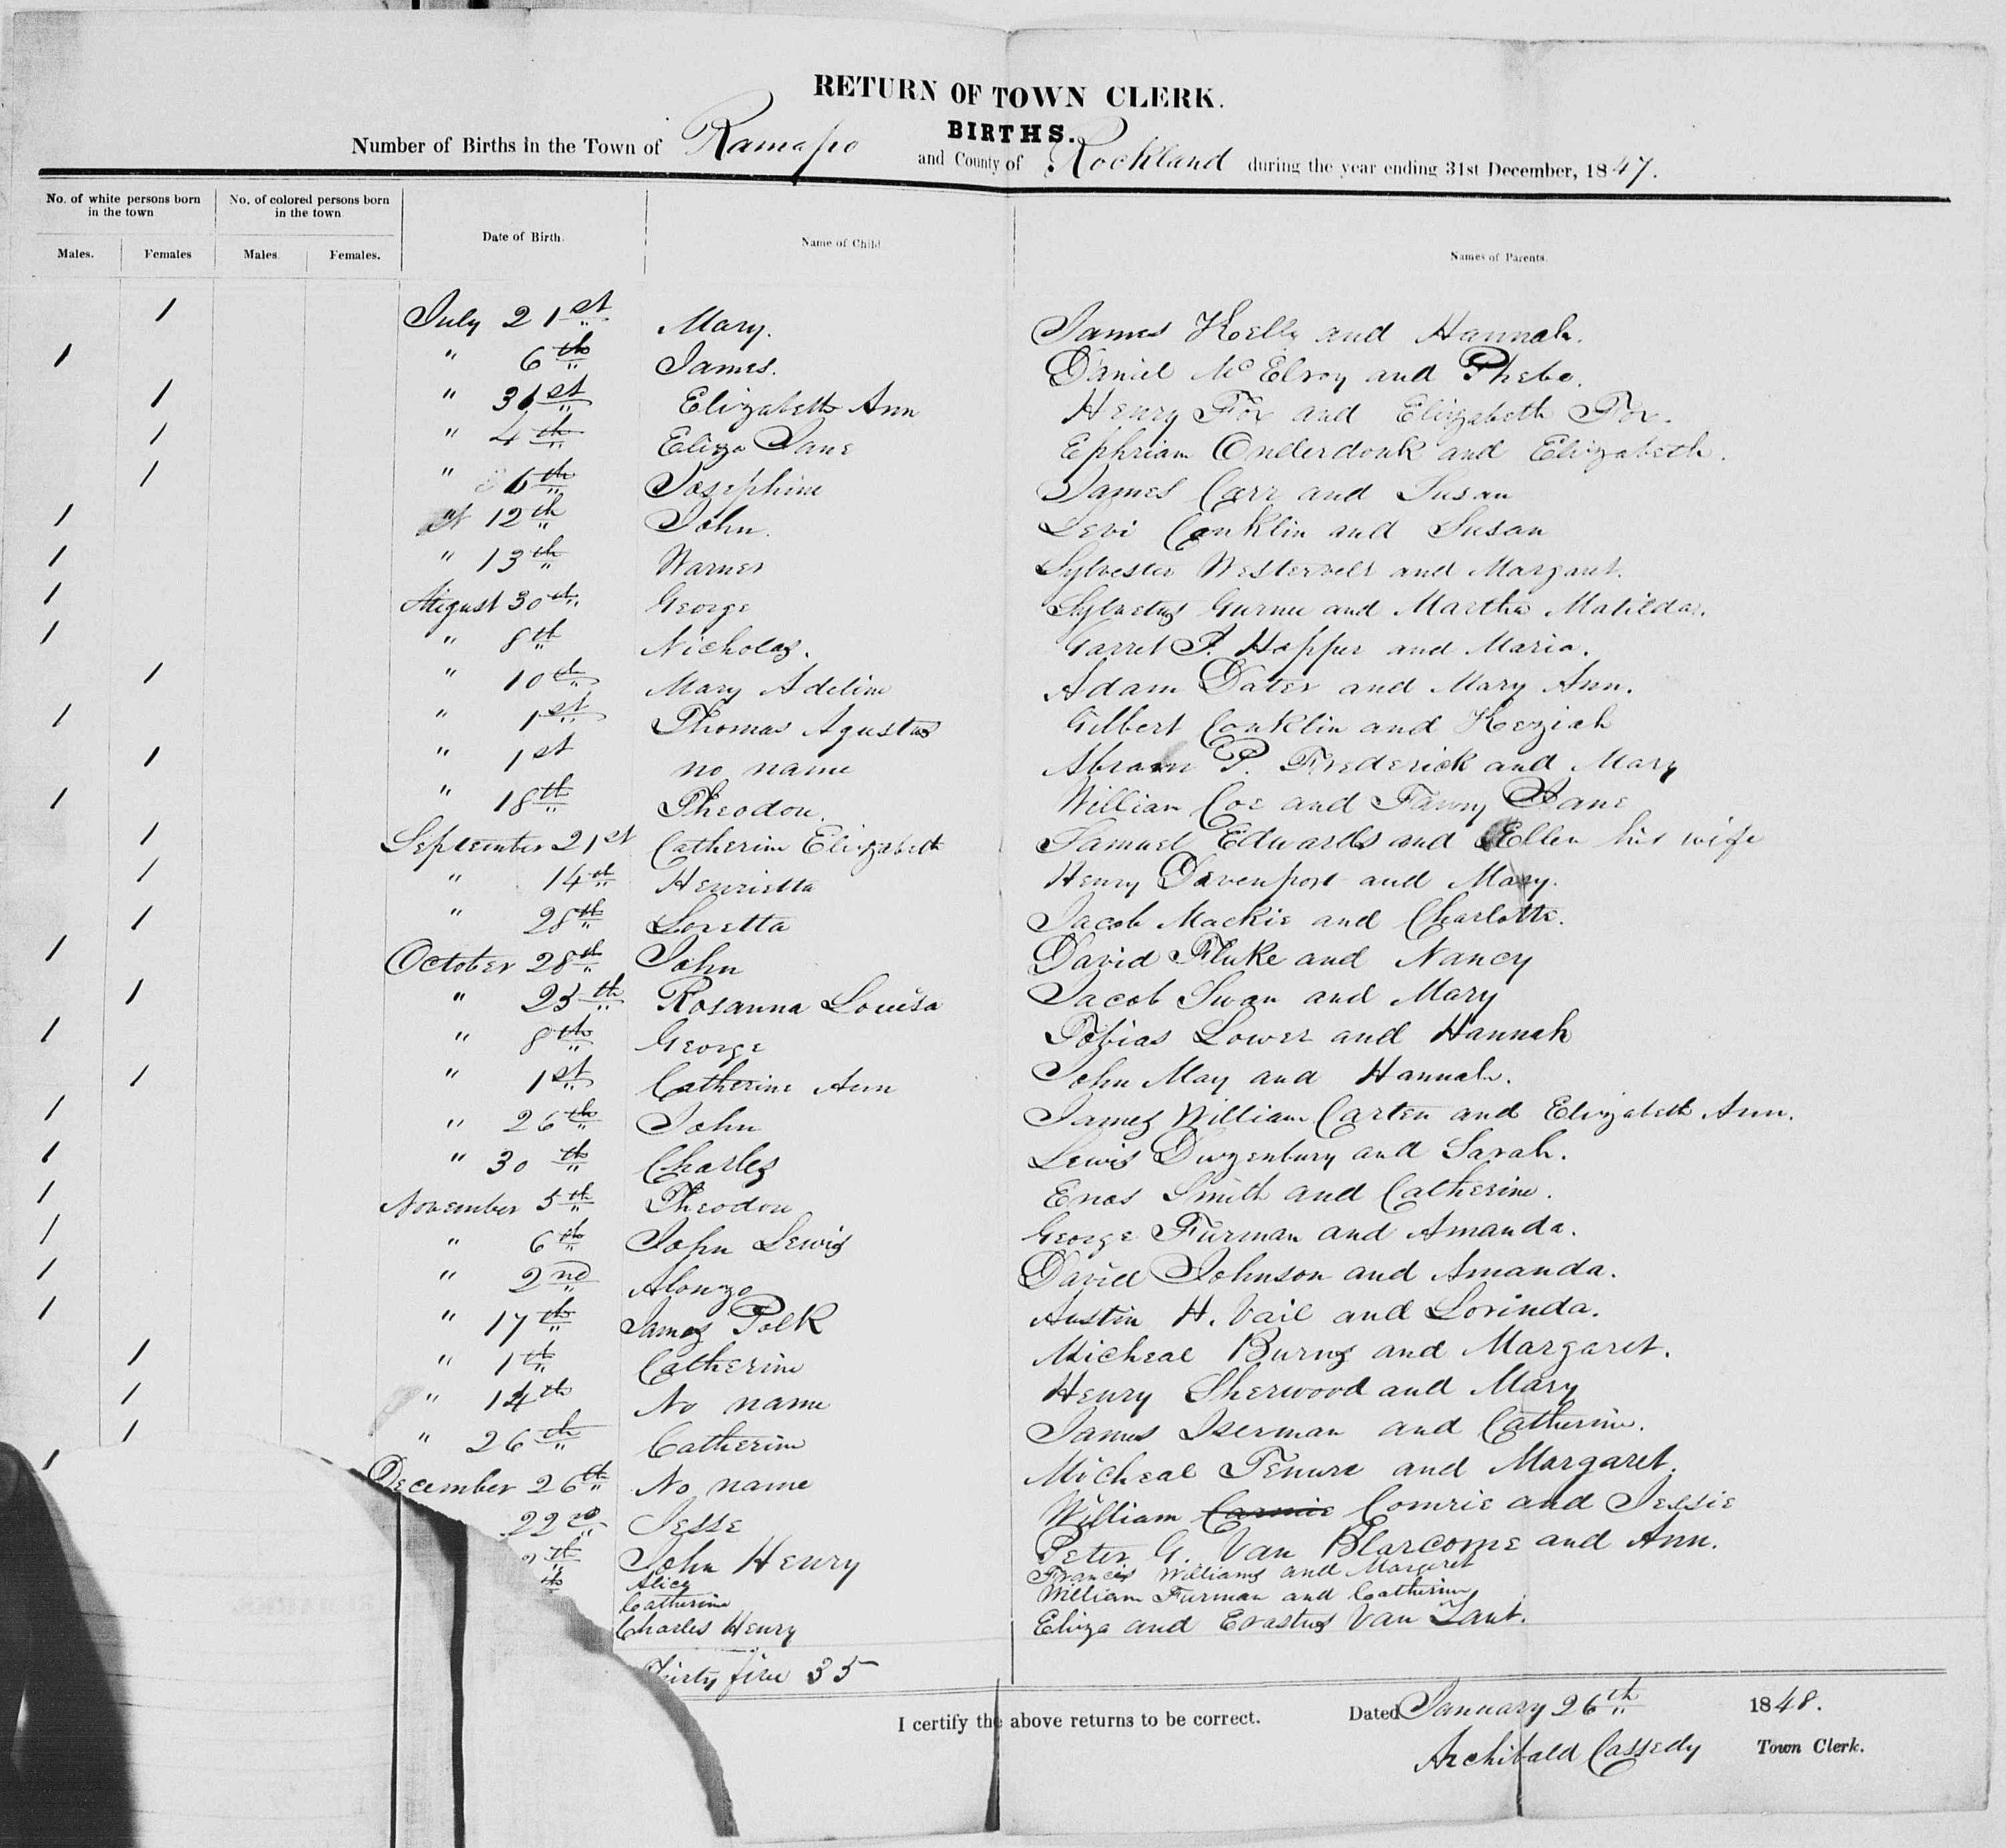 RETURN OF TOWN CLERK.
BIRTHS.
Number of Births in the Town of Ramapo and County of Rockland during the year ending 31st December, 1847.
No. of white persons born in the town No. of colored persons born in the town Date of Birth. Name of Child Names of Parents.
Males. Females Males. Females.
1 July 21st Mary. James Kelly and Hannah.
1 " 6th James. Daniel McElroy and Phebe.
1 " 31st Elizabeth Ann Henry Fox and Elizabeth Fox.
1 " 4th Eliza Jane Ephriam Onderdonk and Elizabeth.
1 " 6th Josephine James Carr and Susan
1 " 12th John. Levi Conklin and Susan
1 " 13th Warner Sylvester Westervelt and Margaret.
1 August 30th George Sylvetus Gurnee and Martha Matildar.
1 " 8th Nicholas. Garret P. Hopper and Maria.
1 " 10th Mary Adeline Adam Dater and Mary Ann.
1 " 1st Thomas Agustus Gilbert Conklin and Keziah
1 " 1st no name Abram P. Frederick and Mary
1 " 18th Theodore. William Coe and Fanny Jane
1 September 21st Catherine Elizabeth Samuel Edwards and Ellen his wife
1 " 14th Henrietta Henry Davenport and Mary.
1 " 28th Loretta Jacob Mackie and Charlotte.
1 October 28th John David Fluke and Nancy
1 " 23th Rosanna Louisa Jacob Swan and Mary
1 " 8th George Tobias Lower and Hannah
1 " 1st Catherine Ann John May and Hannah.
1 " 26th John James William Carten and Elizabeth Ann.
1 " 30th Charles Lewis Duzenbury and Sarah.
1 November 5th Theodore Enos Smith and Catherine.
1 " 6th John Lewis George Furman and Amanda.
1 " 2nd Alonzo David Johnson and Amanda.
1 " 17th James Polk Austin H. Vail and Lorinda.
1 " 1th Catherine Micheal Burns and Margaret.
1 " 14th No name Henry Sherwood and Mary
1 " 26th Catherine James Iserman and Catherine.
1 December 26th No name Micheal Tenure and Margaret.
22nd Jesse William Comrie and Jessie
th John Henry Peter G. Van Blarcome and Ann.
th Alice Francis Williams and Margaret
Catherine William Furman and Catherine
Charles Henry Eliza and Erastus Van Zant.
Thirty five 35
I certify the above returns to be correct. Dated January 26th 1848.
Archibald Cassedy Town Clerk.